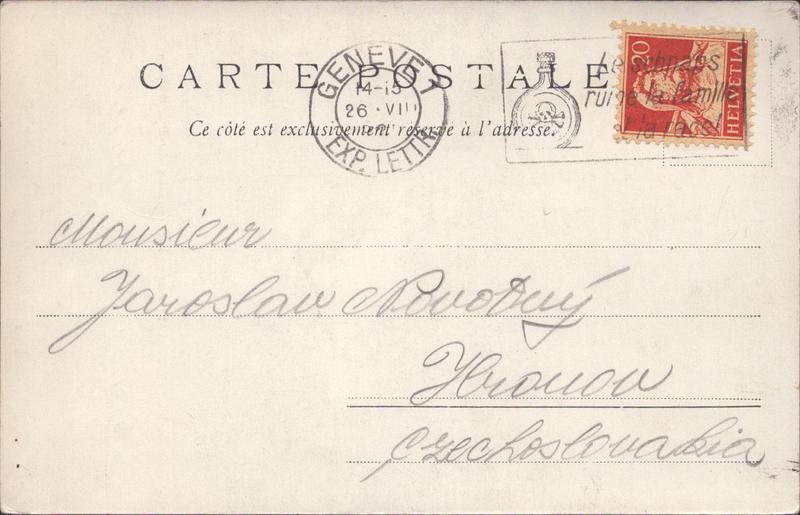 CARTE POSTALE
Ce côté est exclusivement réservé à l'adresse.
GENEVE 1
14-15
26 · VIII
EXP. LETTR
Le schnaps
ruine la famille
la race!
20
HELVETIA
Monsieur
Jaroslav Novotný
Hronov
Czechoslovakia